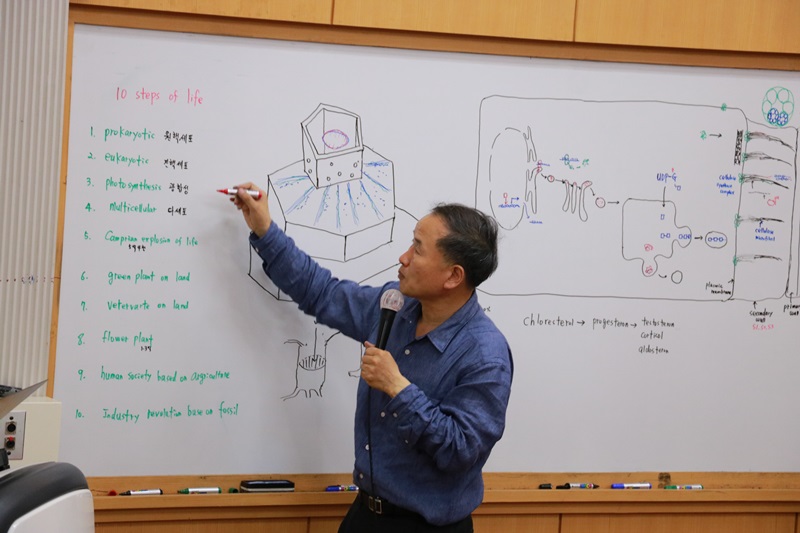 10 steps of life
1. prokaryotic 원핵세포
2. eukaryotic 진핵세포
3. photosynthesis 광합성
4. multicellular 다세포
5. Camprean explosion of life
6. green plant on land
7. vetervarte on land
8. flower plant
9. human society based on argriculture
10. Industry revolution base on fossil
UDP-G
cellulose
synthase
complex
cellulose
microfibril
plasmic
membrane
secondary
wall
S1, S2, S3
Chloresterol → progesteron → testosteron
cortisol
aldosteron